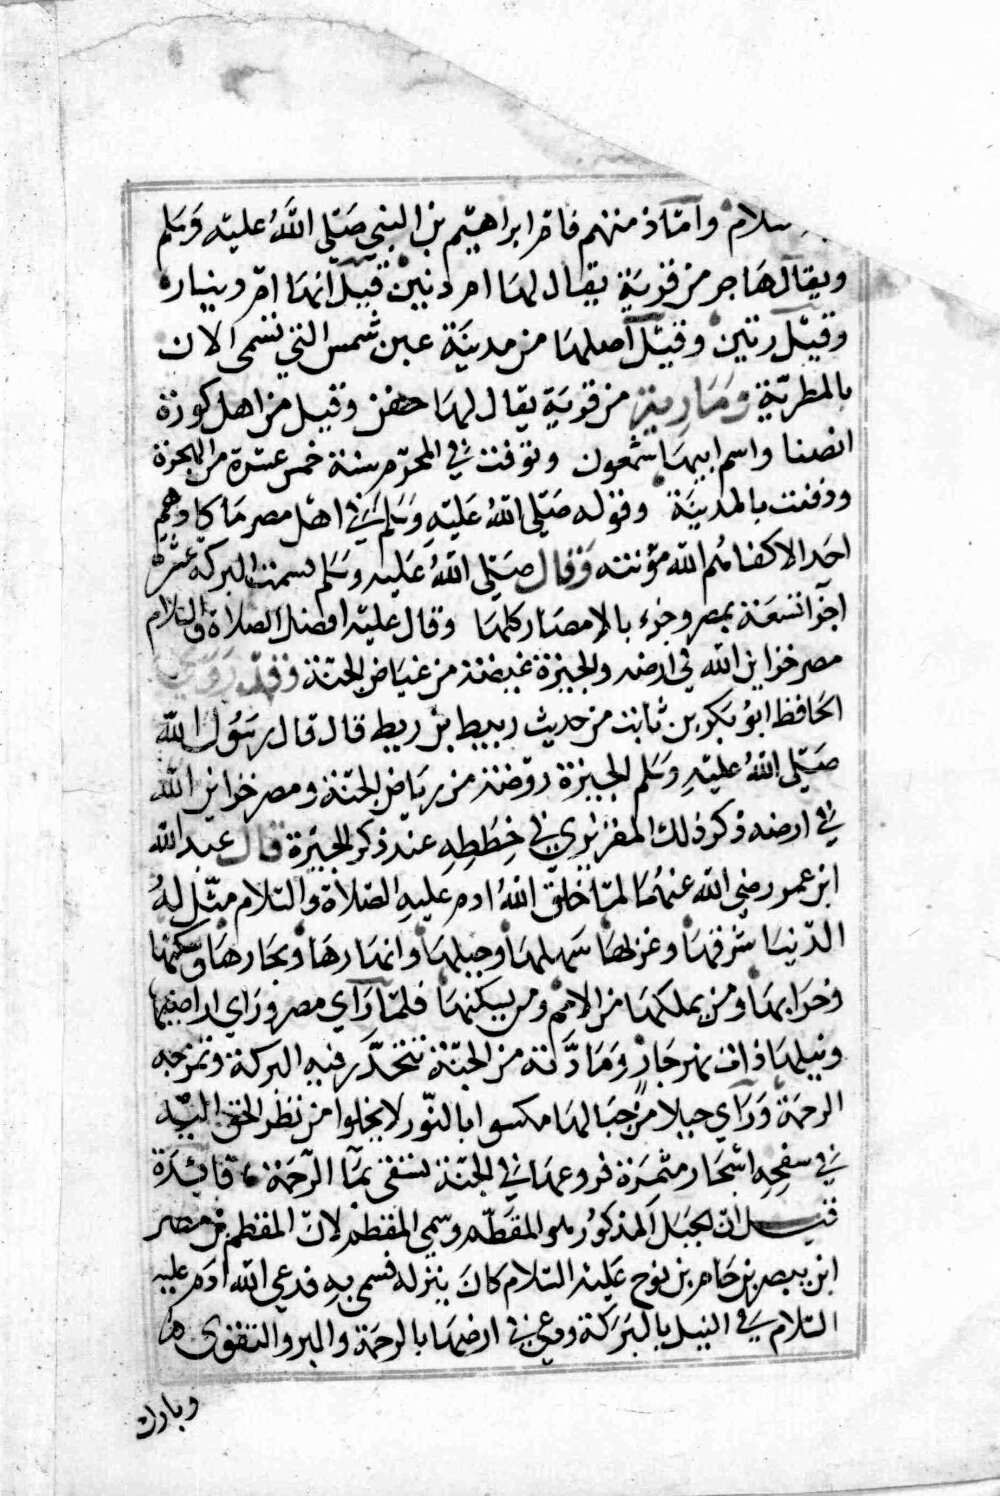 سلام وامتاذ منهم فام ابراهيم بن النبي صَلّى اللّهُ عليه وَسَلم
ويقال هَاجر من قرية يقال لها ام دنين قيل انها ام دينار
وقيل رنين وقيل اصلها من مدينة عين شمس التي تسمى الان
بالمطرية ومَارية من قرية يقال لها حفن وقيل من اهل كورة
انصنا واسم ابيها شمعون وتوفت في المحرم سنة خمس عشرة من الهجرة
ودفنت بالمدينة وقوله صَلّى اللّهُ عَليهِ وَسَلم في اهل مصر مَا كادهم
احد الا كفاهُم اللّه مؤنته وَقال صَلّى اللّهُ عَليه وسَلم قسمت البركة عشرة
اجزا تسعَة بمصر وجزء بالامصَار كلها وقال عليه افضل الصَلاة والسلام
مصر خزاين اللّه في ارضه والجيزة غيضة من غياض الجنّة وَقد رَوى
الحَافظ ابو بَكر بن ثابت من حديث ربيط بن ريط قال قال رسُول اللّه
صَلّى اللّهُ عليهِ وسَلم الجيزة روضة من رياض الجنّة ومصر خزاين اللّه
في ارضه ذكر ذلك المقريزي في خِطَطِهِ عند ذكر الجيزة قال عبد اللّه
ابن عمرو رضي اللّه عنهُما لمّا خلق اللّهُ ادم عليهِ الصَلاة والسَلام مثّل لهُ
الدنيا شرقها وغربها سَهلها وجبلها وانهارها وبحارها وسكنها
وخرابها ومن يملكها من الامم ومن يسكنها فلمّا رَاي مصر ورَاي اراضيها
ونيلها ذات نهر جَارٍ وَمَادّته من الجنّة تتحدّر فيهِ البركة وتمزجه
الرحمة وَرَاي جبلا من جبَالها مكسوا بالنّور لا يخلوا من نظر الحق اليه
في سفحِهِ اشجار مثمرة فروعها في الجنّة تسقى بمَا الرّحمَة فَائدة
قيل ان الجبل المذكور هو المقطّم وسمي المقطم لانّ المقطم بن مصر
ابن بيصر بن حَام بن نوح عَليهِ السَلام كانَ ينزله فسمي بهِ فدعي اللّه ادَم عليه
السَلام في النيل بالبَرَكة ودعى في ارضها بالرحمة والبر والتقوى
وبارك